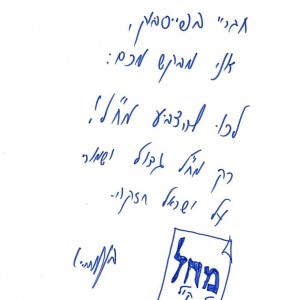 חבריי בפייסבוק,
אני מבקש מכם:
לכו להצביע מח"ל!
רק מח"ל גדול ישמור
על ישראל חזקה.
מחל